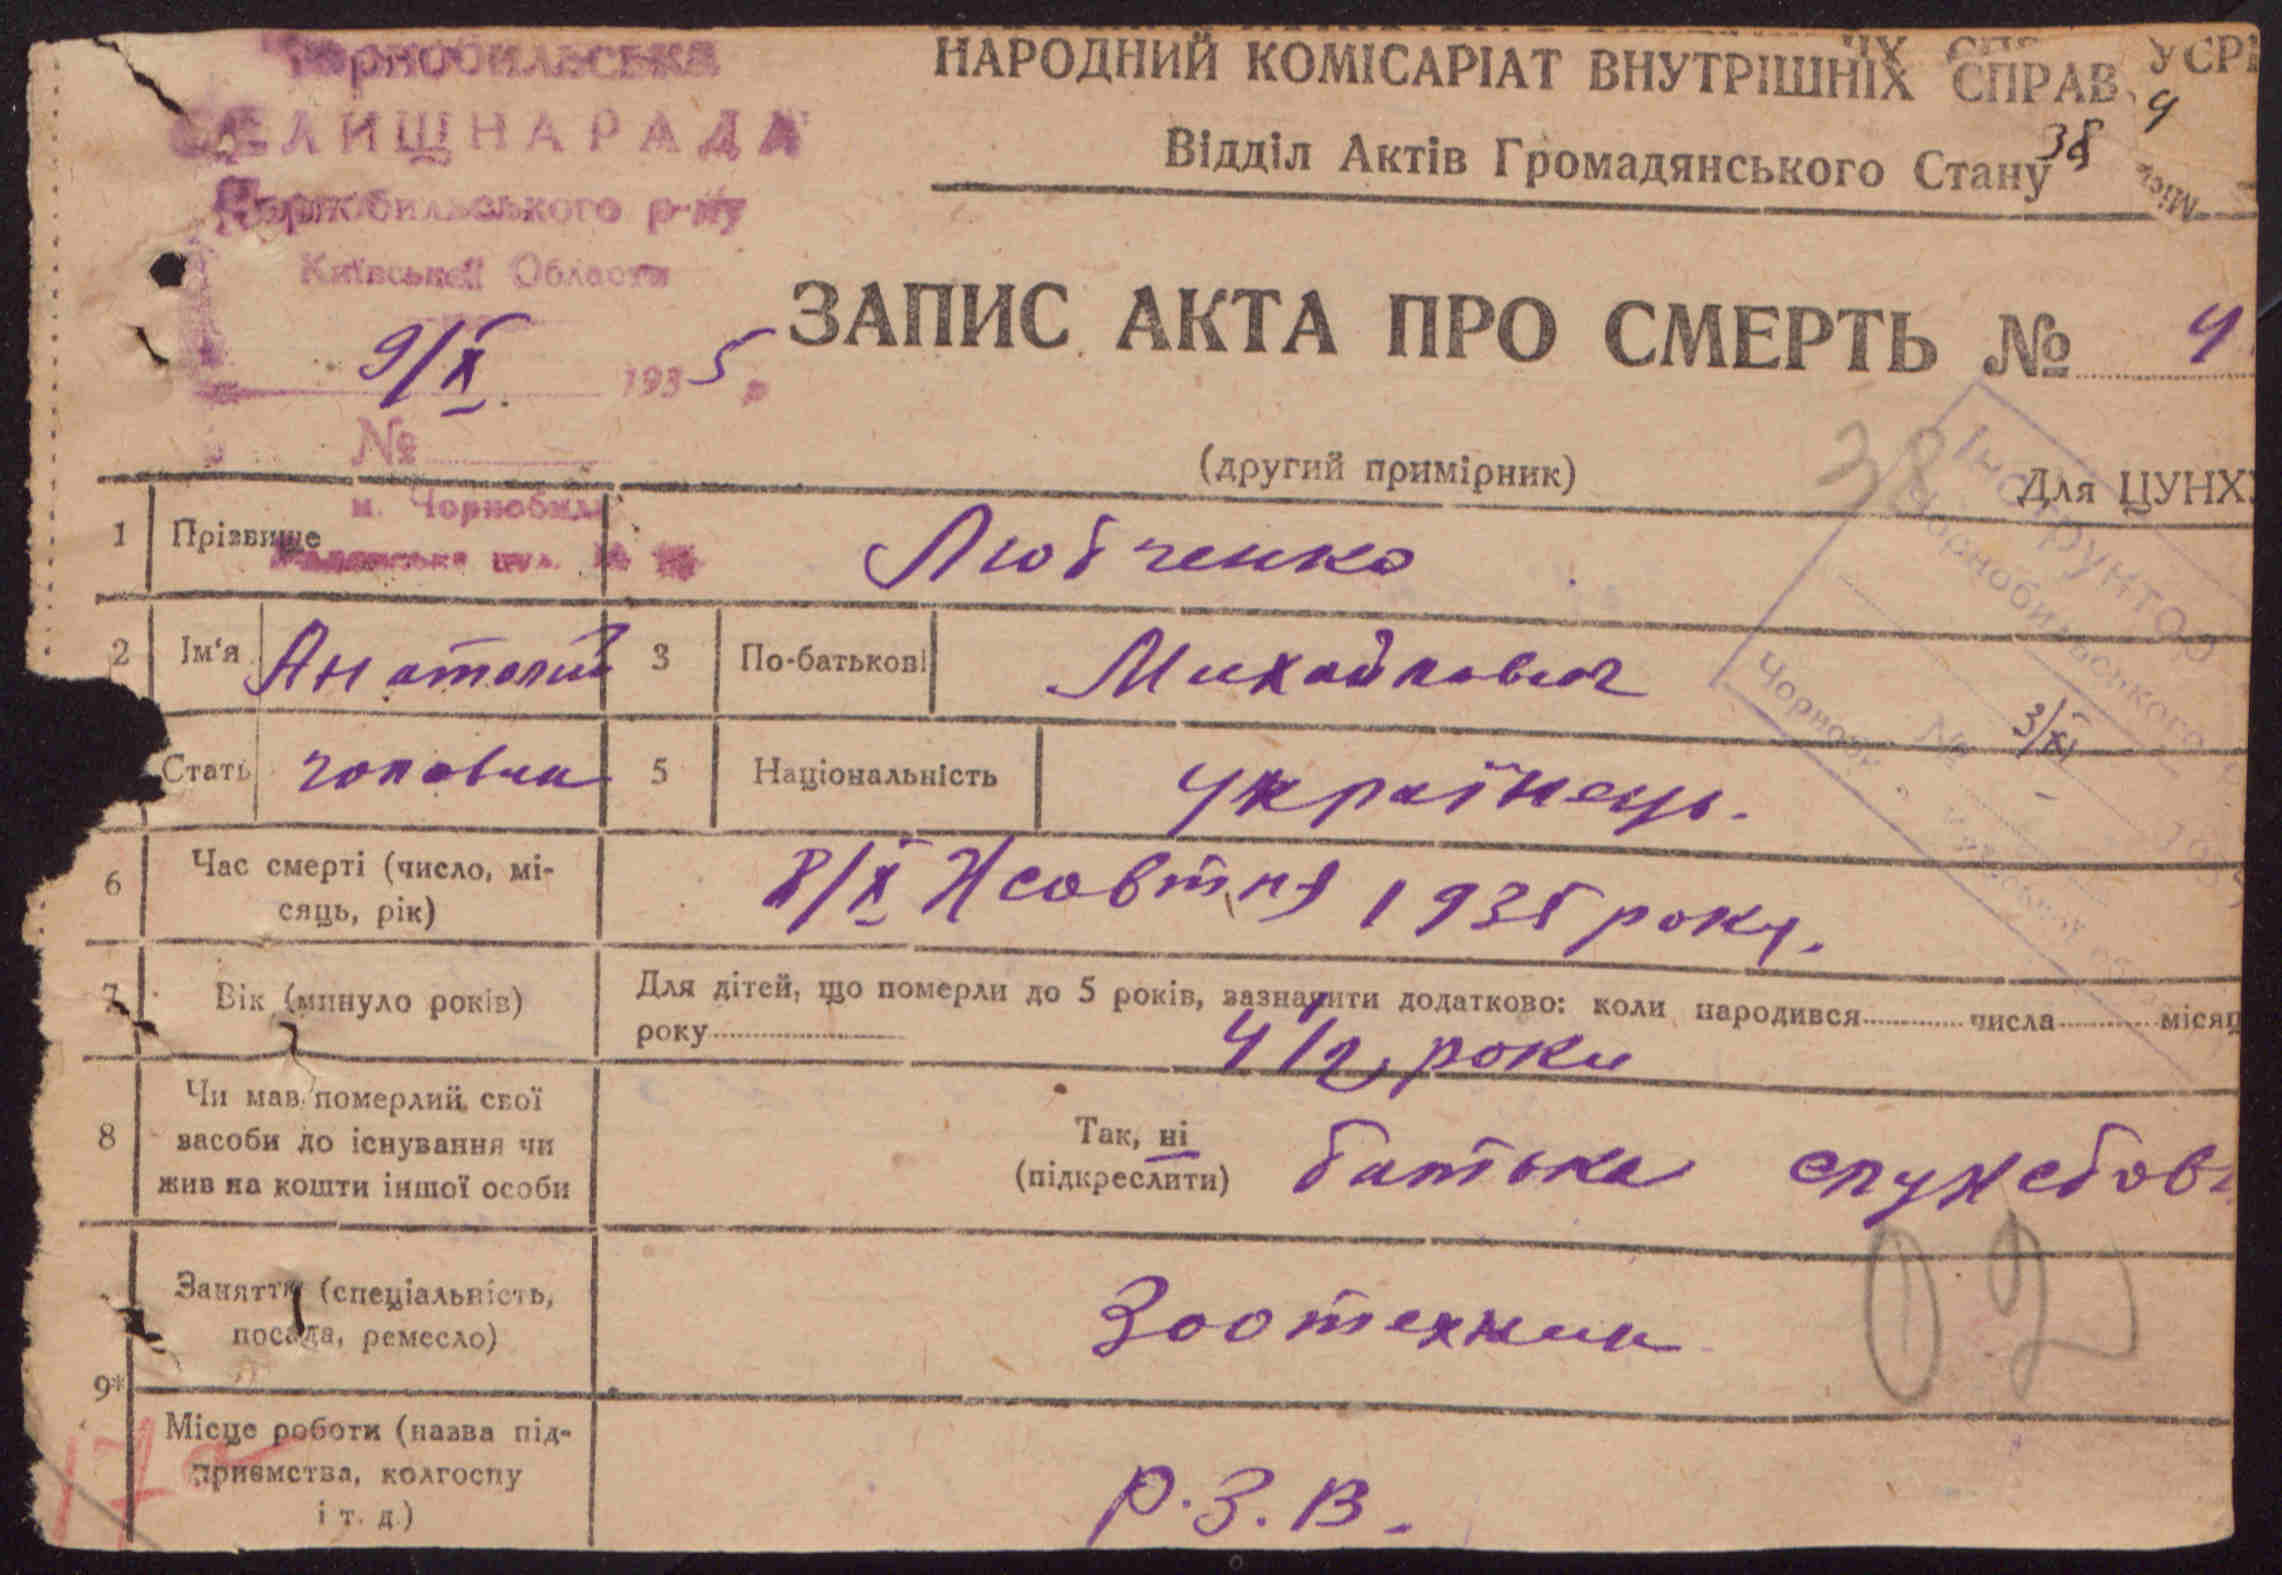 Чорнобильська
СЕЛИЩНАРАДА
Чорнобильського р-ну
Київської Області
9/X 1935 р
№
м. Чорнобиль
НАРОДНИЙ КОМІСАРІАТ ВНУТРІШНІХ СПРАВ УСРР
Відділ Актів Громадянського Стану
38
4
ЗАПИС АКТА ПРО СМЕРТЬ № 4
(другий примірник)
Для ЦУНХ
38
Інструктор
Чорнобильського
№ 3/XI
1 Прізвище Любченко
2 Ім'я Анатолий 3 По-батькові Михайлович
Стать чоловик 5 Національність українець.
6 Час смерті (число, мі-
сяць, рік) 8/X Жовтня 1935 року.
7 Вік (минуло років) Для дітей, що померли до 5 років, зазначити додатково: коли народився числа місяц
року 4 1/2 роки
8 Чи мав померлий свої
засоби до існування чи
жив на кошти іншої особи
Так, ні
(підкреслити) батька службов
02
9* Заняття (спеціальність,
посада, ремесло) Зоотехник
Місце роботи (назва під-
приємства, колгоспу
і т. д.) Р.З.В.